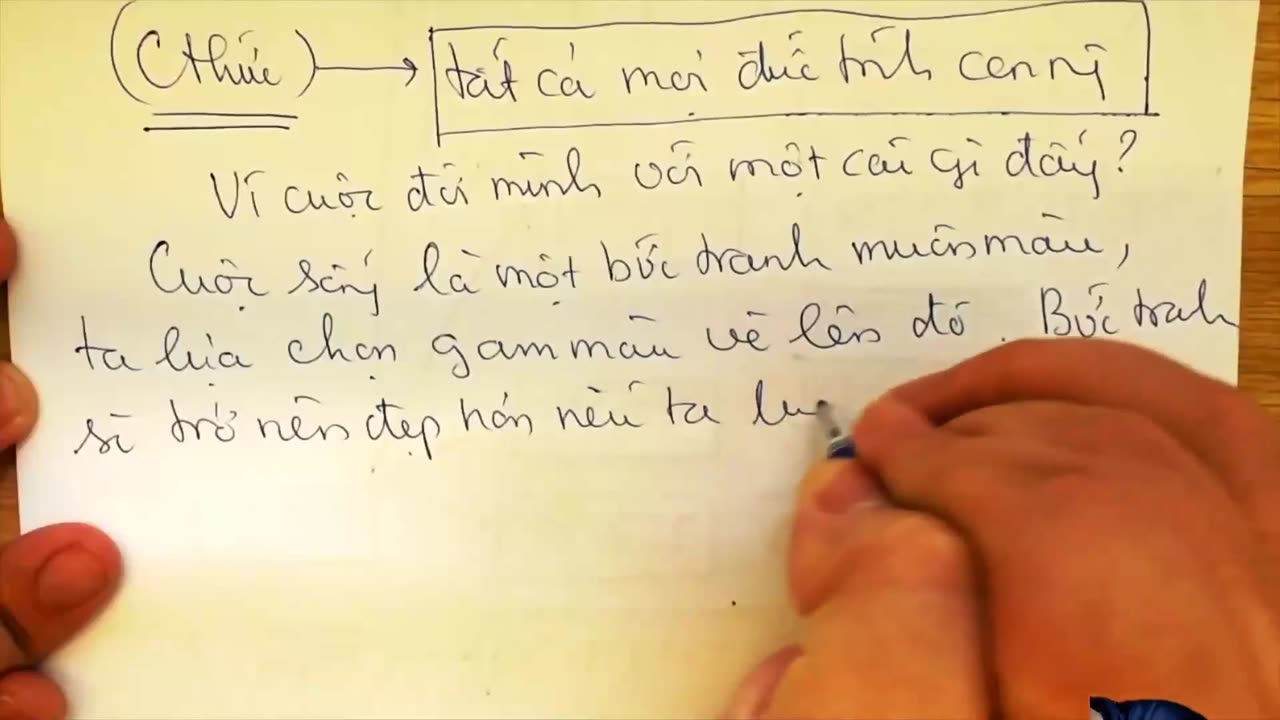 (Cthức) → tất cả mọi đức tính con ng
Ví cuộc đời mình với một cái gì đấy?
Cuộc sống là một bức tranh muôn màu,
ta lựa chọn gam màu vẽ lên đó. Bức tranh
sẽ trở nên đẹp hơn nếu ta lự